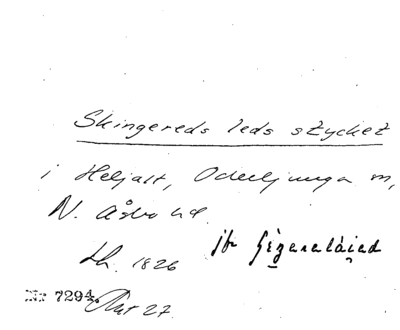 Skingereds leds stycket
i Heljalt, Oderljunga sn,
N. Åsbo hd.
Lh. 1826 jfr
Nr 7294. Akt 27